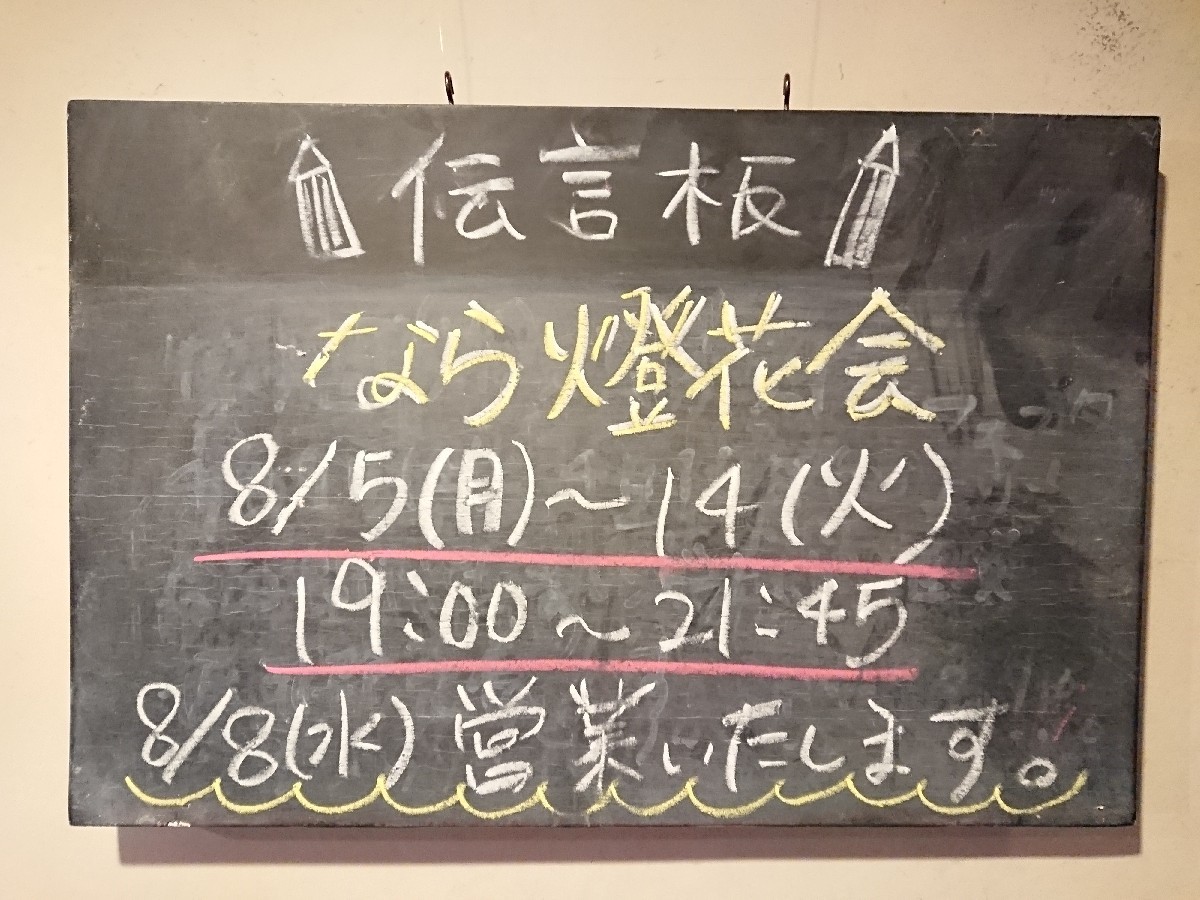 伝言板
なら燈花会
8/5(月)~14(火)
19:00~21:45
8/8(水)営業いたします。